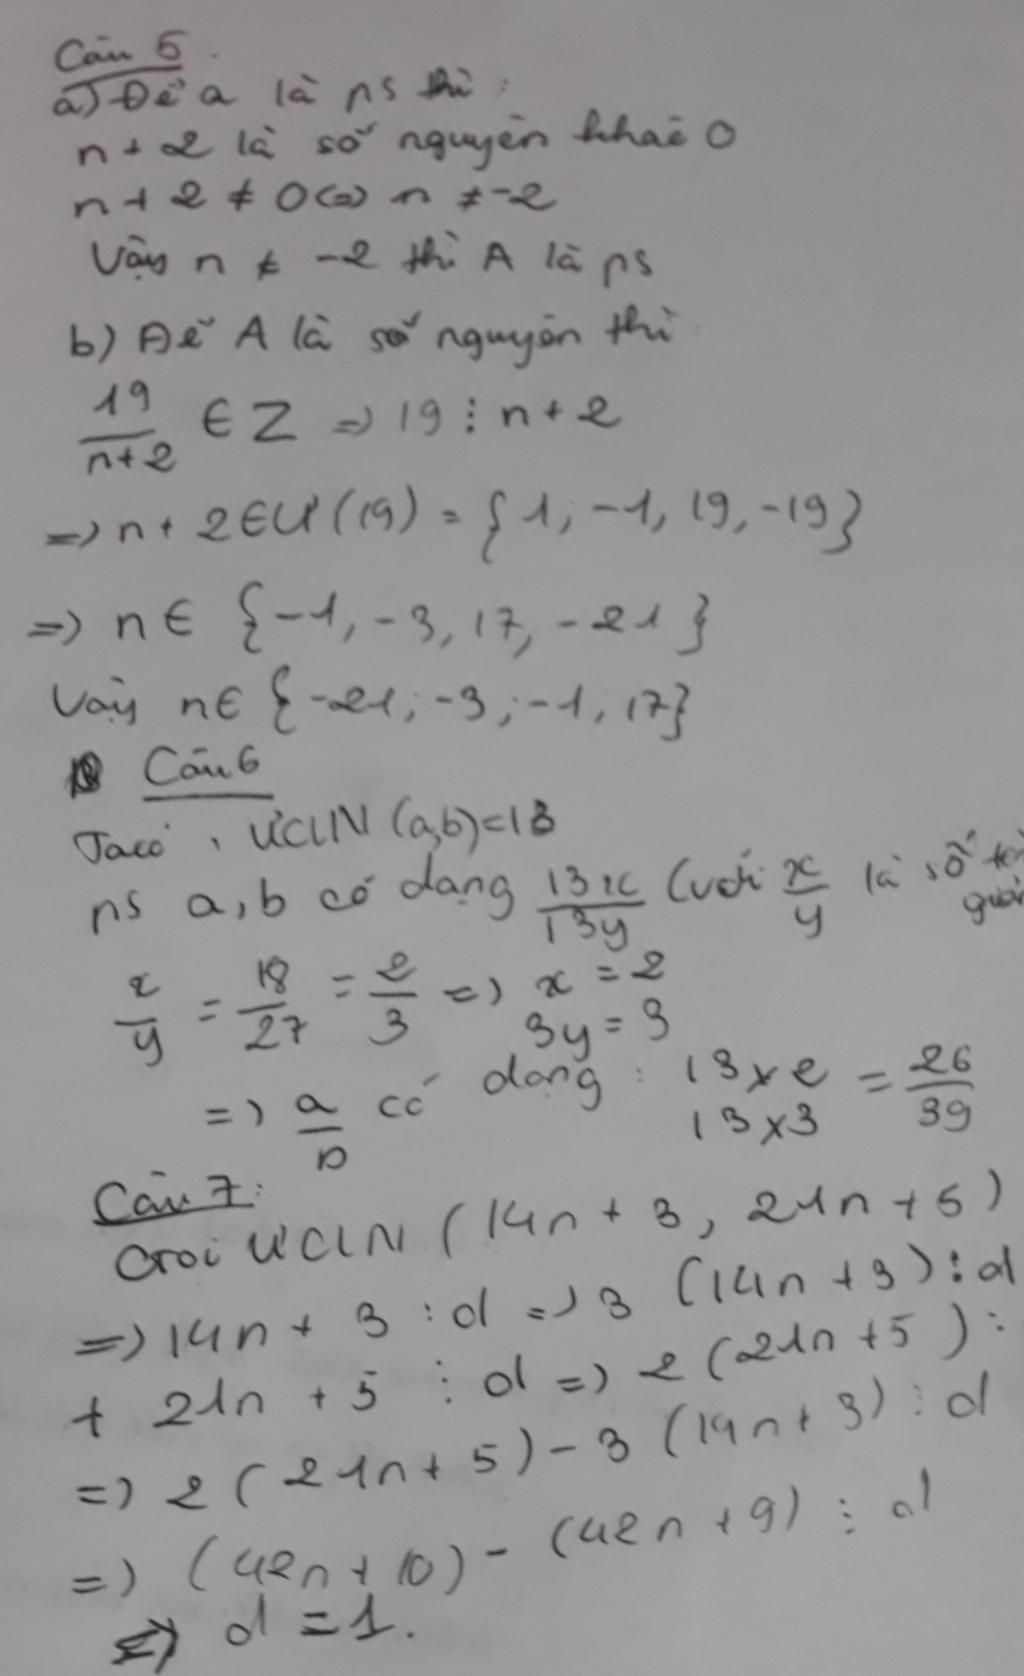 Câu 5.
a) Để a là ps thì:
n + 2 là số nguyên khác 0
n + 2 ≠ 0 <=> n ≠ -2
Vậy n ≠ -2 thì A là ps
b) Để A là số nguyên thì
19/n+2 ∈ Z => 19 ⋮ n + 2
=> n + 2 ∈ Ư(19) = {1; -1, 19, -19}
=> n ∈ {-1, -3, 17, -21}
Vậy n ∈ {-21; -3; -1; 17}
Câu 6
Ta có, ƯCLN (a,b)=13
ps a, b có dạng 13x/13y (với x/y là số tối
giản
x/y = 18/27 = 2/3 => x = 2
3y = 3
=> a/b có dạng: 13×2/13×3 = 26/39
Câu 7:
Gọi ƯCLN (14n + 3, 21n + 5)
=> 14n + 3 ⋮ d => 3 (14n + 3) ⋮ d
+ 21n + 5 ⋮ d => 2 (21n + 5) ⋮
=> 2 (21n + 5) - 3 (14n + 3) ⋮ d
=> (42n + 10) - (42n + 9) ⋮ d
=> d = 1.